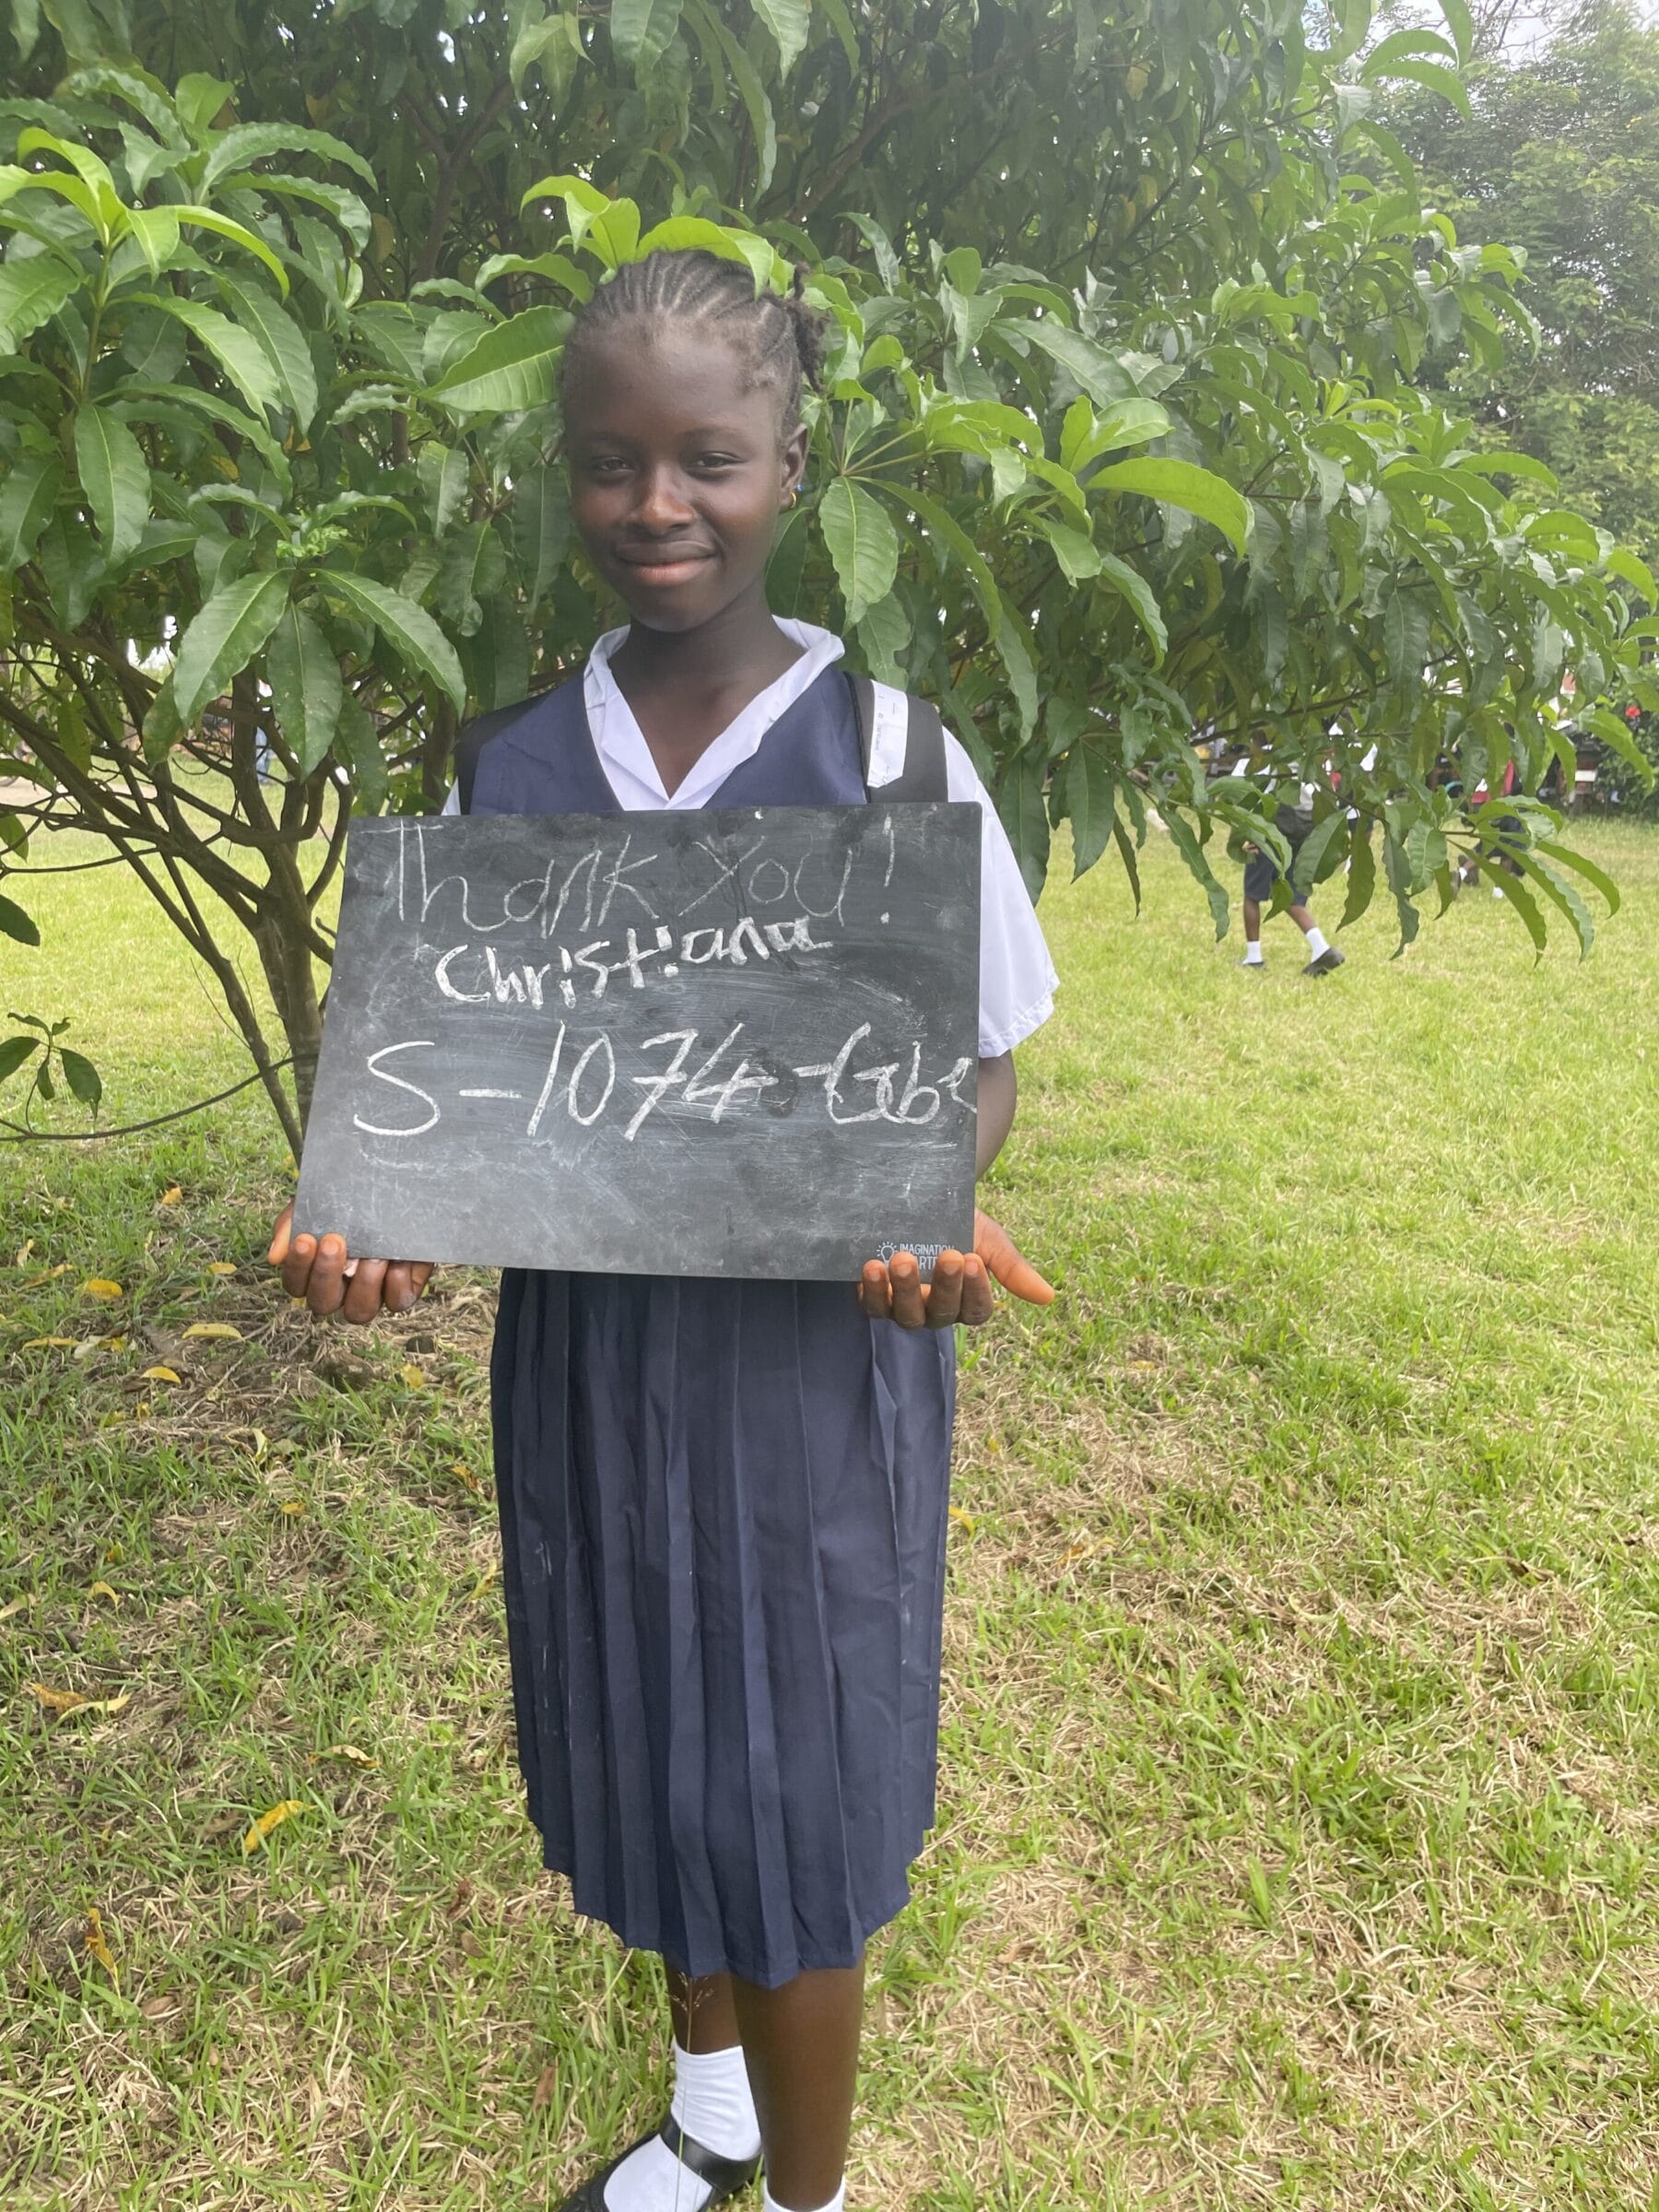 Thank You!
Christiana
S-1074-Gbe
IMAGINATION